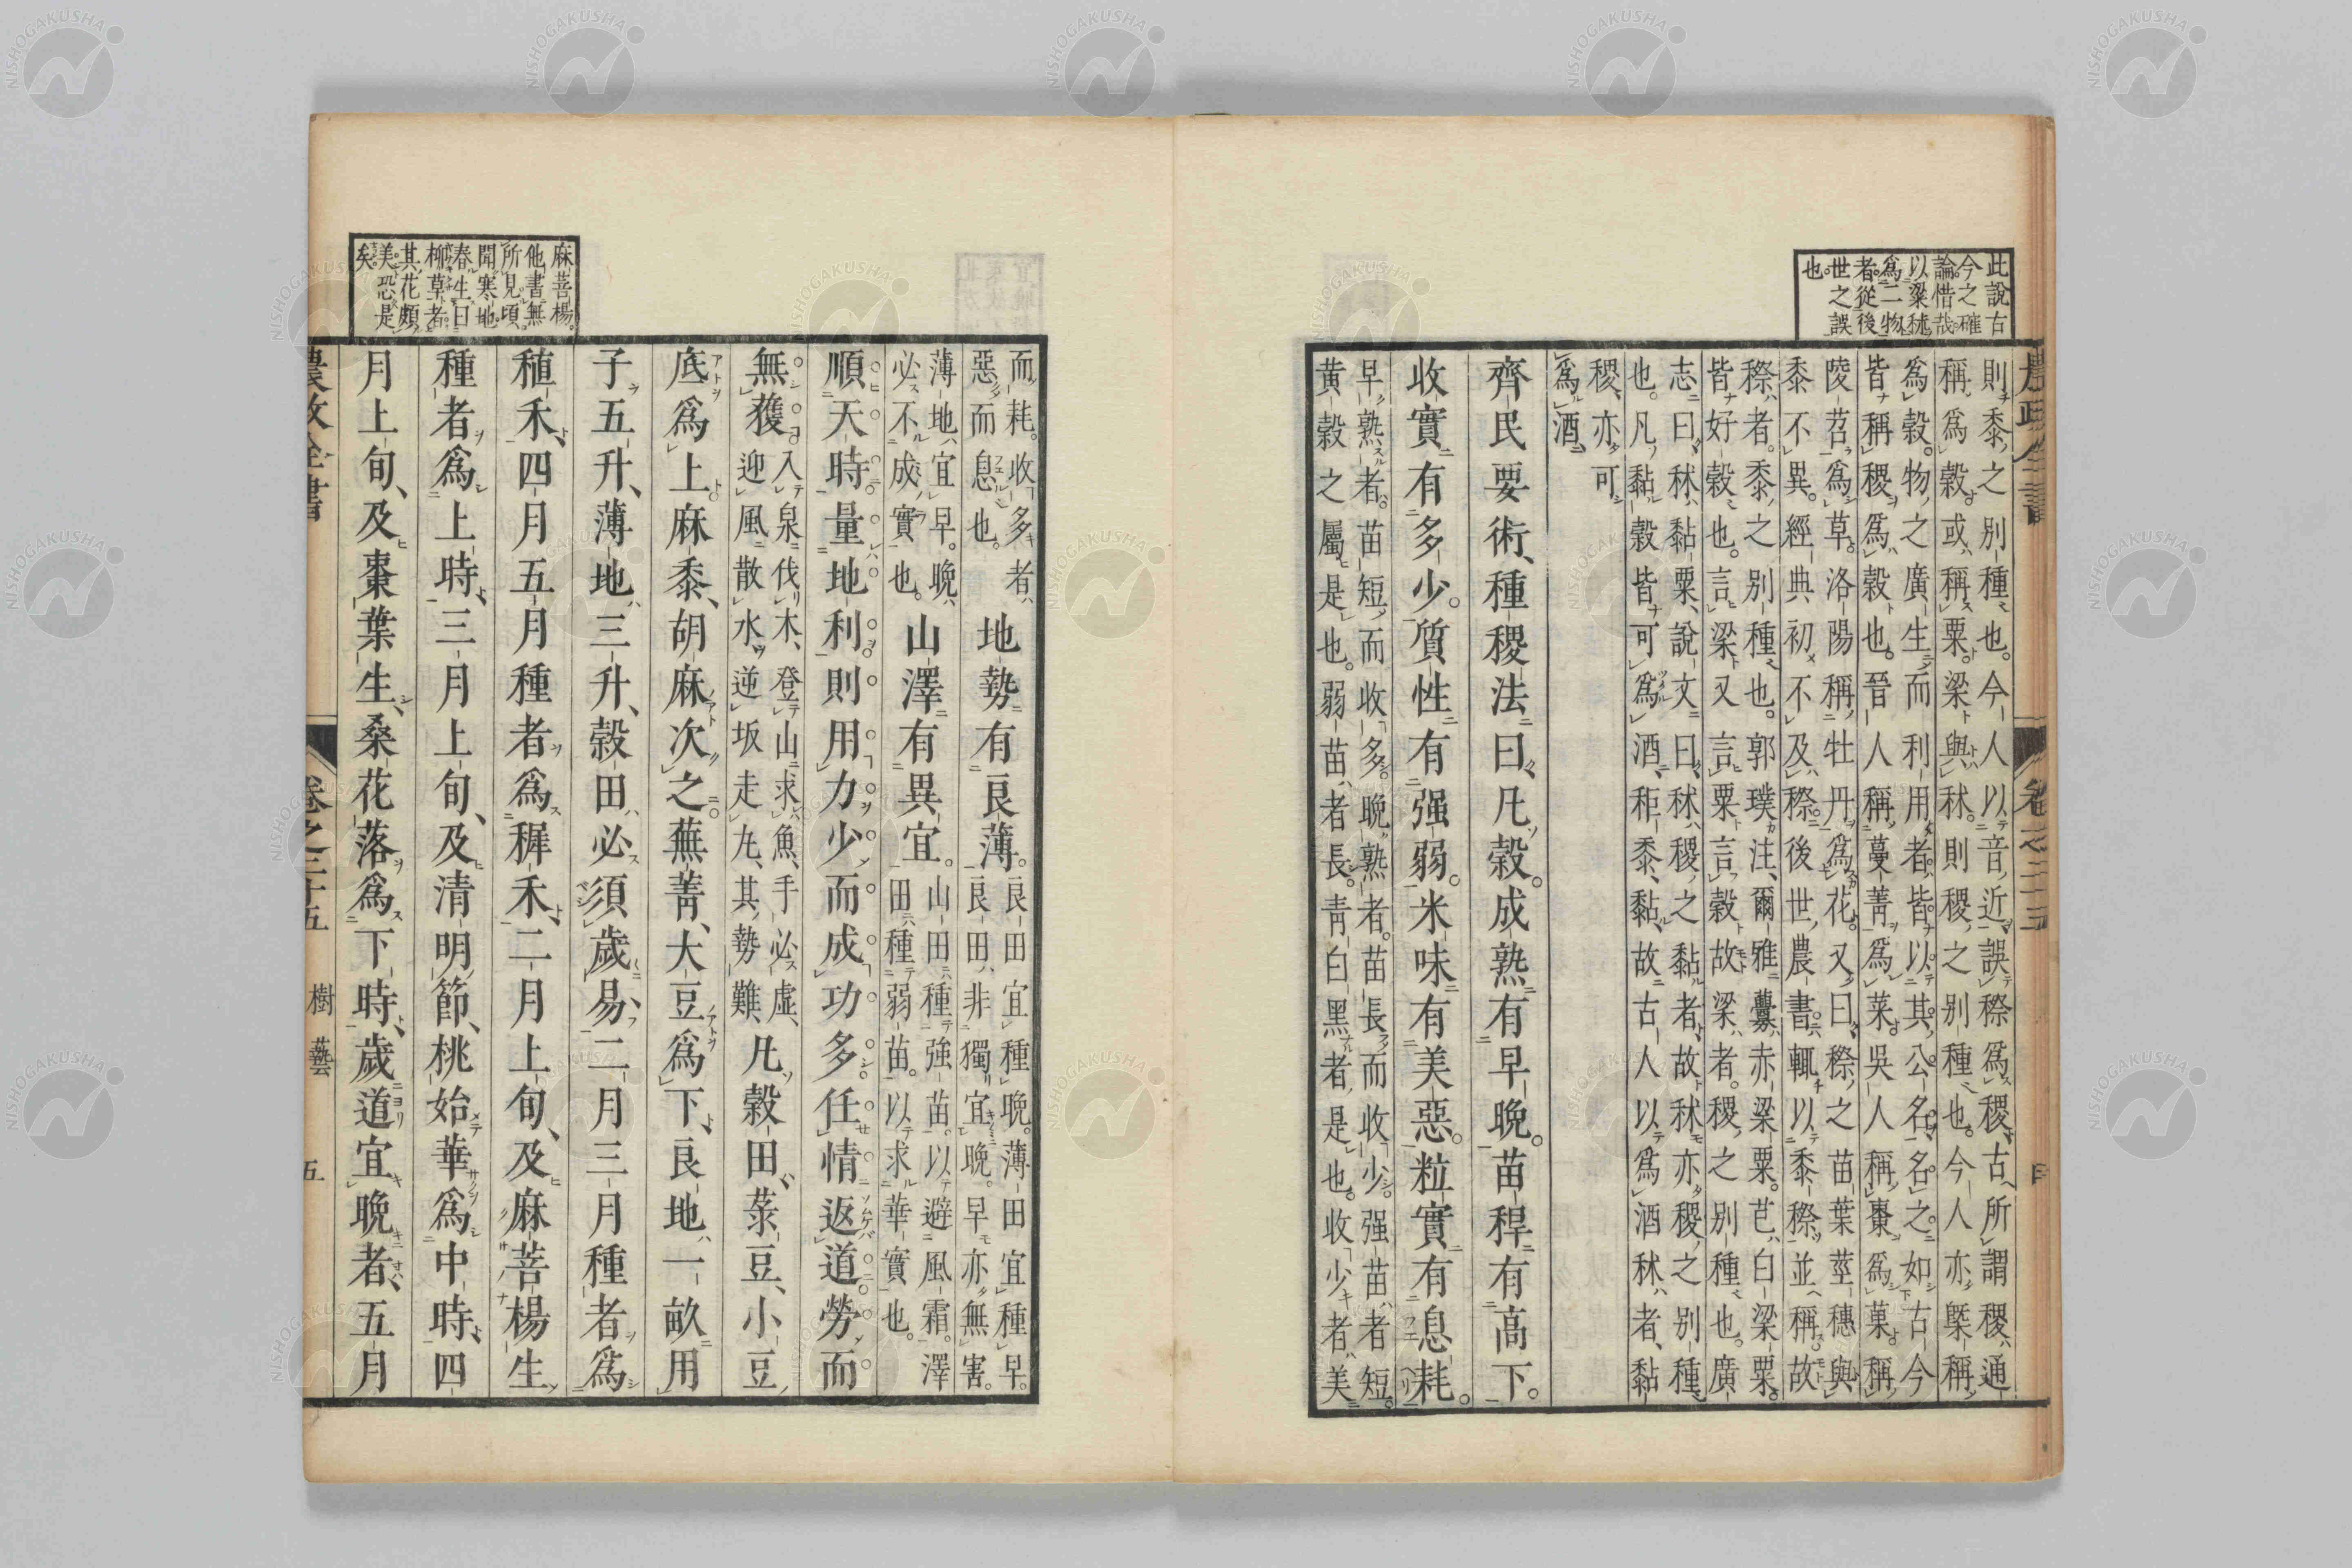 此說古
今之確
論惜哉
以粱秫
爲二物
者從後
世之誤
也
則黍之別種也。今人以音近誤穄爲稷古所謂稷通
稱爲穀或稱粟。粱與秫。則稷之別種也。今人亦槩稱
爲穀。物之廣生而利用者皆以其公名名之如古今
皆稱稷爲穀也。晉人稱蔓菁爲菜。吳人稱棗爲菓。稱
陵苕爲草。洛陽稱牡丹爲花。又曰穄之苗葉莖穗與
黍不異。經典初不及穄後世農書輒以黍穄並稱故
穄者。黍之別種也。郭璞注爾雅虋赤粱粟。芑白粱粟。
皆好穀也。言粱又言粟言穀故粱者。稷之別種也。廣
志曰秫黏粟、說文曰秫稷之黏者、故秫亦稷之別種
也。凡黏穀皆可爲酒、秬黍、黏、故古人以爲酒秫者、黏
稷、亦可
爲酒
齊民要術、種稷法曰凡穀。成熟有早晚。苗稈有高下。
收實有多少。質性有强弱。米味有美惡。粒實有息耗。
早熟者。苗短而收多。晚熟者。苗長而收少。强苗者短。
黃穀之屬是也。弱苗者長。青白黑者是也。收少者美
農政全書
卷之二十五
麻菩楊
他書無
所見頃
聞寒地
春生曰
柳草者
其花頗
美恐是
矣。
而耗。收多者
惡而息也。
地勢有良薄。
良田宜種晚。薄田宜種早。
良田非獨宜晚。早亦無害。
薄地宜早。晚
必不成實也。
山澤有異宜。
山田種強苗。以避風霜。澤
田種弱苗。以求華實也。
順天時量地利則用力少而成功多任情返道勞而
無獲
入泉伐木、登山求魚、手必虛、
迎風散水逆坂走丸、其勢難、
凡穀田、菉豆、小豆
底爲上麻黍、胡麻次之蕪菁、大豆爲下、良地一畝用
子五升、薄地三升、穀田必須歲易、二月三月種者爲
稙禾、四月五月種者爲穉禾、二月上旬、及麻菩楊生
種者爲上時、三月上旬、及清明節、桃始華爲中時、四
月上旬、及棗葉生、桑花落爲下時、歲道宜晚者、五月
農政全書
卷之二十五
樹藝
五